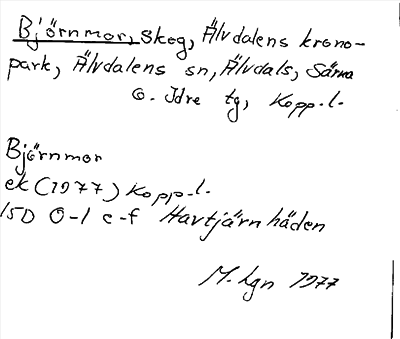 Björnmor, skog, Älvdalens krono-
park, Älvdalens sn, Älvdals, Särna
o. Idre tg, Kopp.l.
Björnmor
ek (1977) Kopp.l.
15D 0-1 e-f Havtjärnhäden
M. Lgn 1977